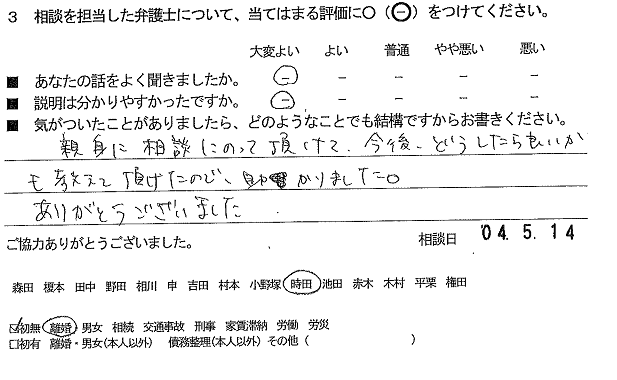 3 相談を担当した弁護士について、当てはまる評価に○（㊀）をつけてください。
大変よい よい 普通 やや悪い 悪い
■ あなたの話をよく聞きましたか。 － － － － －
■ 説明は分かりやすかったですか。 － － － － －
■ 気がついたことがありましたら、どのようなことでも結構ですからお書きください。
親身に相談にのって頂けて、今後、どうしたら良いか
も教えて頂けたので、助かりました。
ありがとうございました
ご協力ありがとうございました。
相談日 04.5.14
森田 榎本 田中 野田 相川 申 吉田 村本 小野塚 時田 池田 赤木 木村 平栗 権田
☑初無 離婚・男女 相続 交通事故 刑事 家賃滞納 労働 労災
□初有 離婚・男女(本人以外) 債務整理(本人以外) その他（ ）